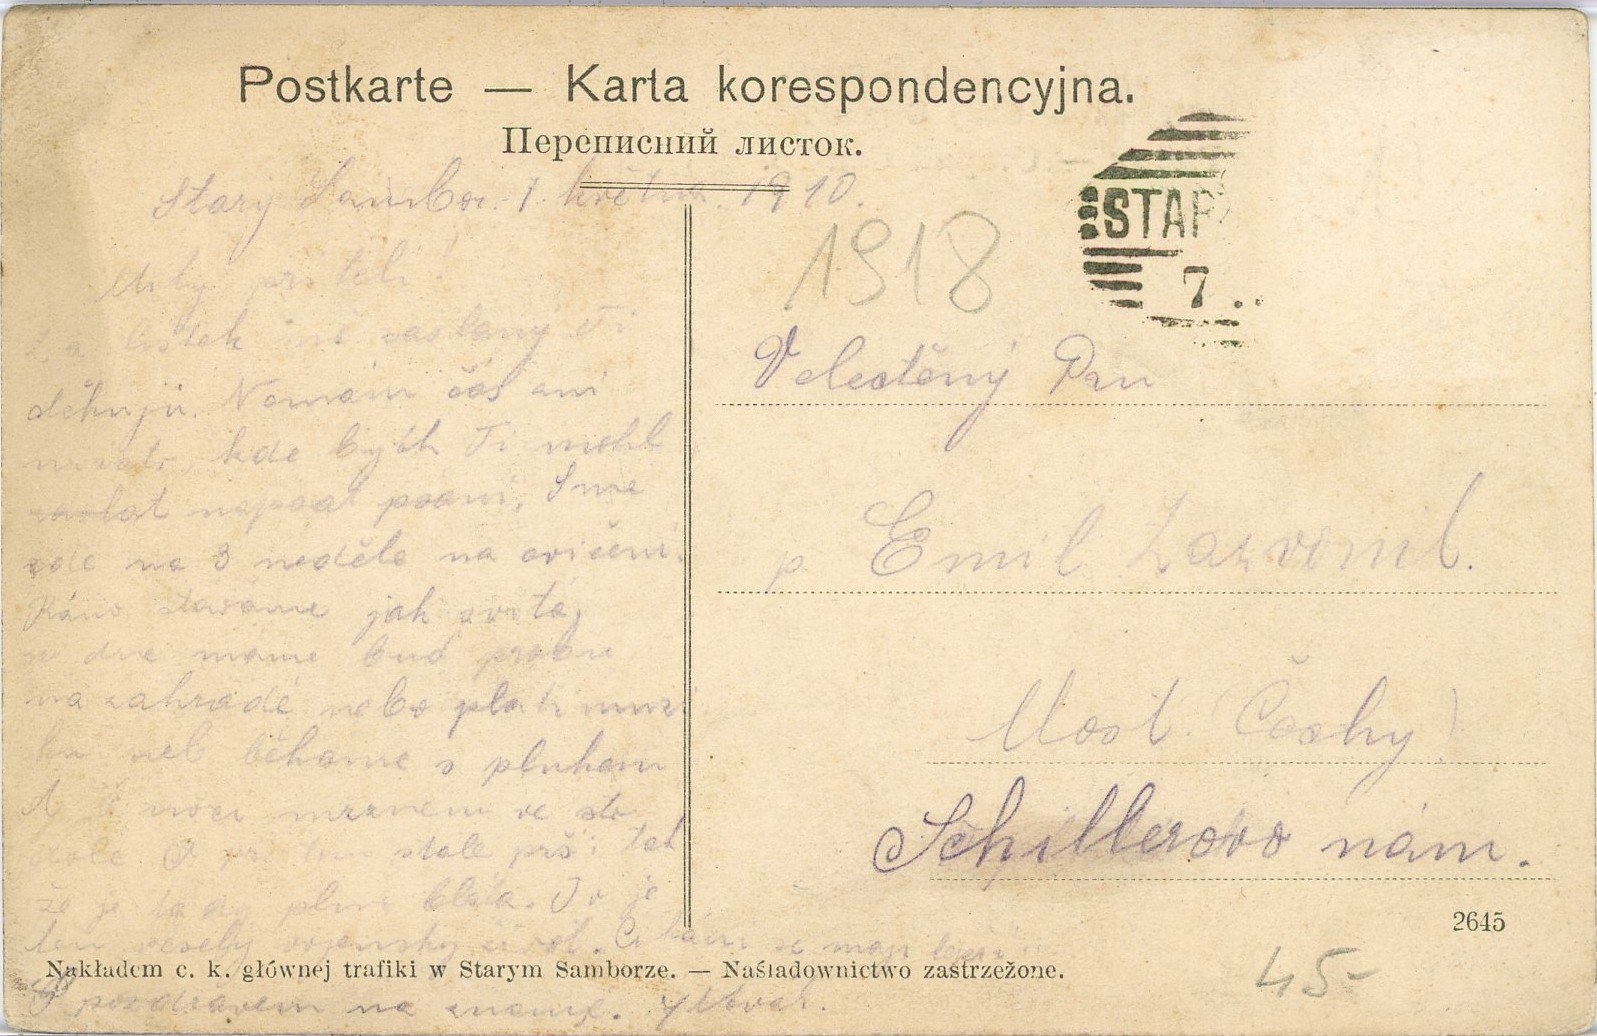 Postkarte — Karta korespondencyjna.
Переписний листок.
Starý Sambor. 1. května. 1910.
Milý příteli.
Za lístek mě zaslaný Ti
děkuji. Nemám čas ani
kde bych Ti mohl
napsat psaní. Sme
zde na 3 neděle na cvičení.
Ráno stáváme jak svítá,
ve dne máme buď probu
na zahradě nebo
neb běháme s plukem
A v noci mrznem ve sto
dole. A při tom stále prší tak
že je tady plno bláta. To je
ten veselý vojenský život.
S pozdravem na známé. Novák.
1918
STAR
7
Velectěný Pan
p. Emil
Most. (Čechy)
Schillerovo nám.
2645
Nakładem c. k. głównej trafiki w Starym Samborze. — Naśladownictwo zastrzeżone.
45-